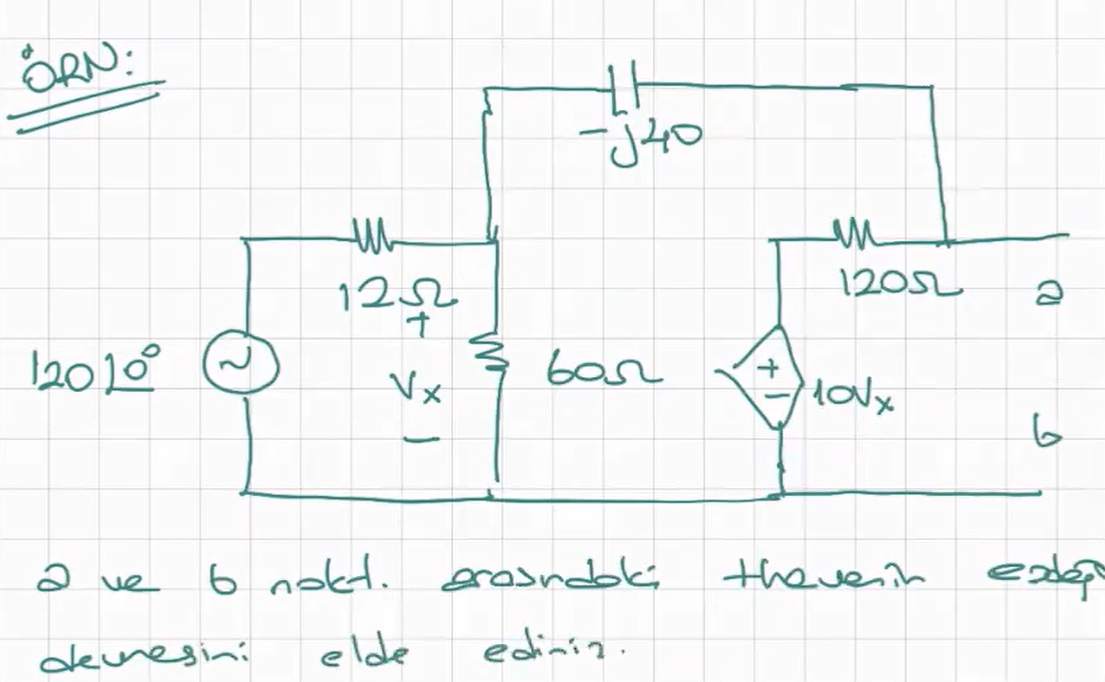 ÖRN:
-j40
12Ω
120Ω
a
120∠0°
+
Vx
−
60Ω
+
−
10Vx
b
a ve b nokt. arasındaki thevenin eşdeğ
devresini elde ediniz.